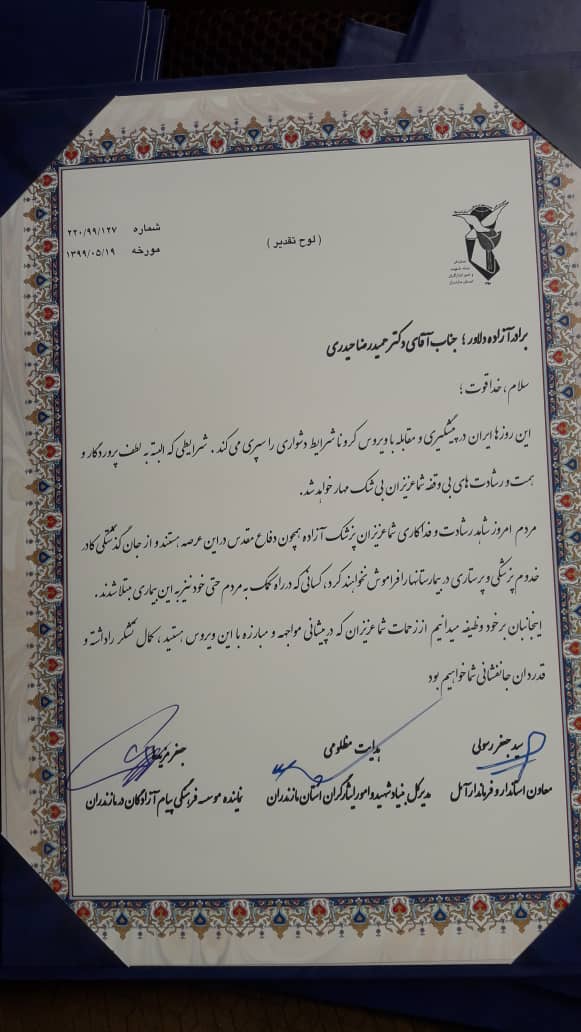 شماره ۲۲۰/۹۹/۱۲۷
مورخه ۱۳۹۹/۰۵/۱۹
( لوح تقدیر )
بنیاد شهید
و امور ایثارگران
استان مازندران
برادر آزاده دلاور ؛ جناب آقای دکتر حمیدرضا حیدری
سلام ، خدا قوت ؛
این روزها ایران در پیشگیری و مقابله با ویروس کرونا شرایط دشواری را سپری می کند . شرایطی که البته به لطف پروردگار و
همت و رشادت های بی وقفه شما عزیزان بی شک مهار خواهد شد.
مردم امروز شاهد رشادت و فداکاری شما عزیزان پزشک آزاده همچون دفاع مقدس در این عرصه هستند و از جان گذشتگی کادر
خدوم پزشکی و پرستاری در بیمارستانها را فراموش نخواهند کرد، کسانی که در راه کمک به مردم حتی خود نیز به این بیماری مبتلا شدند .
اینجانبان بر خود وظیفه میدانیم از زحمات شما عزیزان که در پیشانی مواجهه و مبارزه با این ویروس هستید ، کمال تشکر را داشته و
قدردان جانفشانی شما خواهیم بود
سید جعفر رسولی
معاون استاندار و فرماندار آمل
هدایت مظلومی
مدیرکل بنیاد شهید و امور ایثارگران استان مازندران
جعفر
نماینده موسسه فرهنگی پیام آزادگان در مازندران